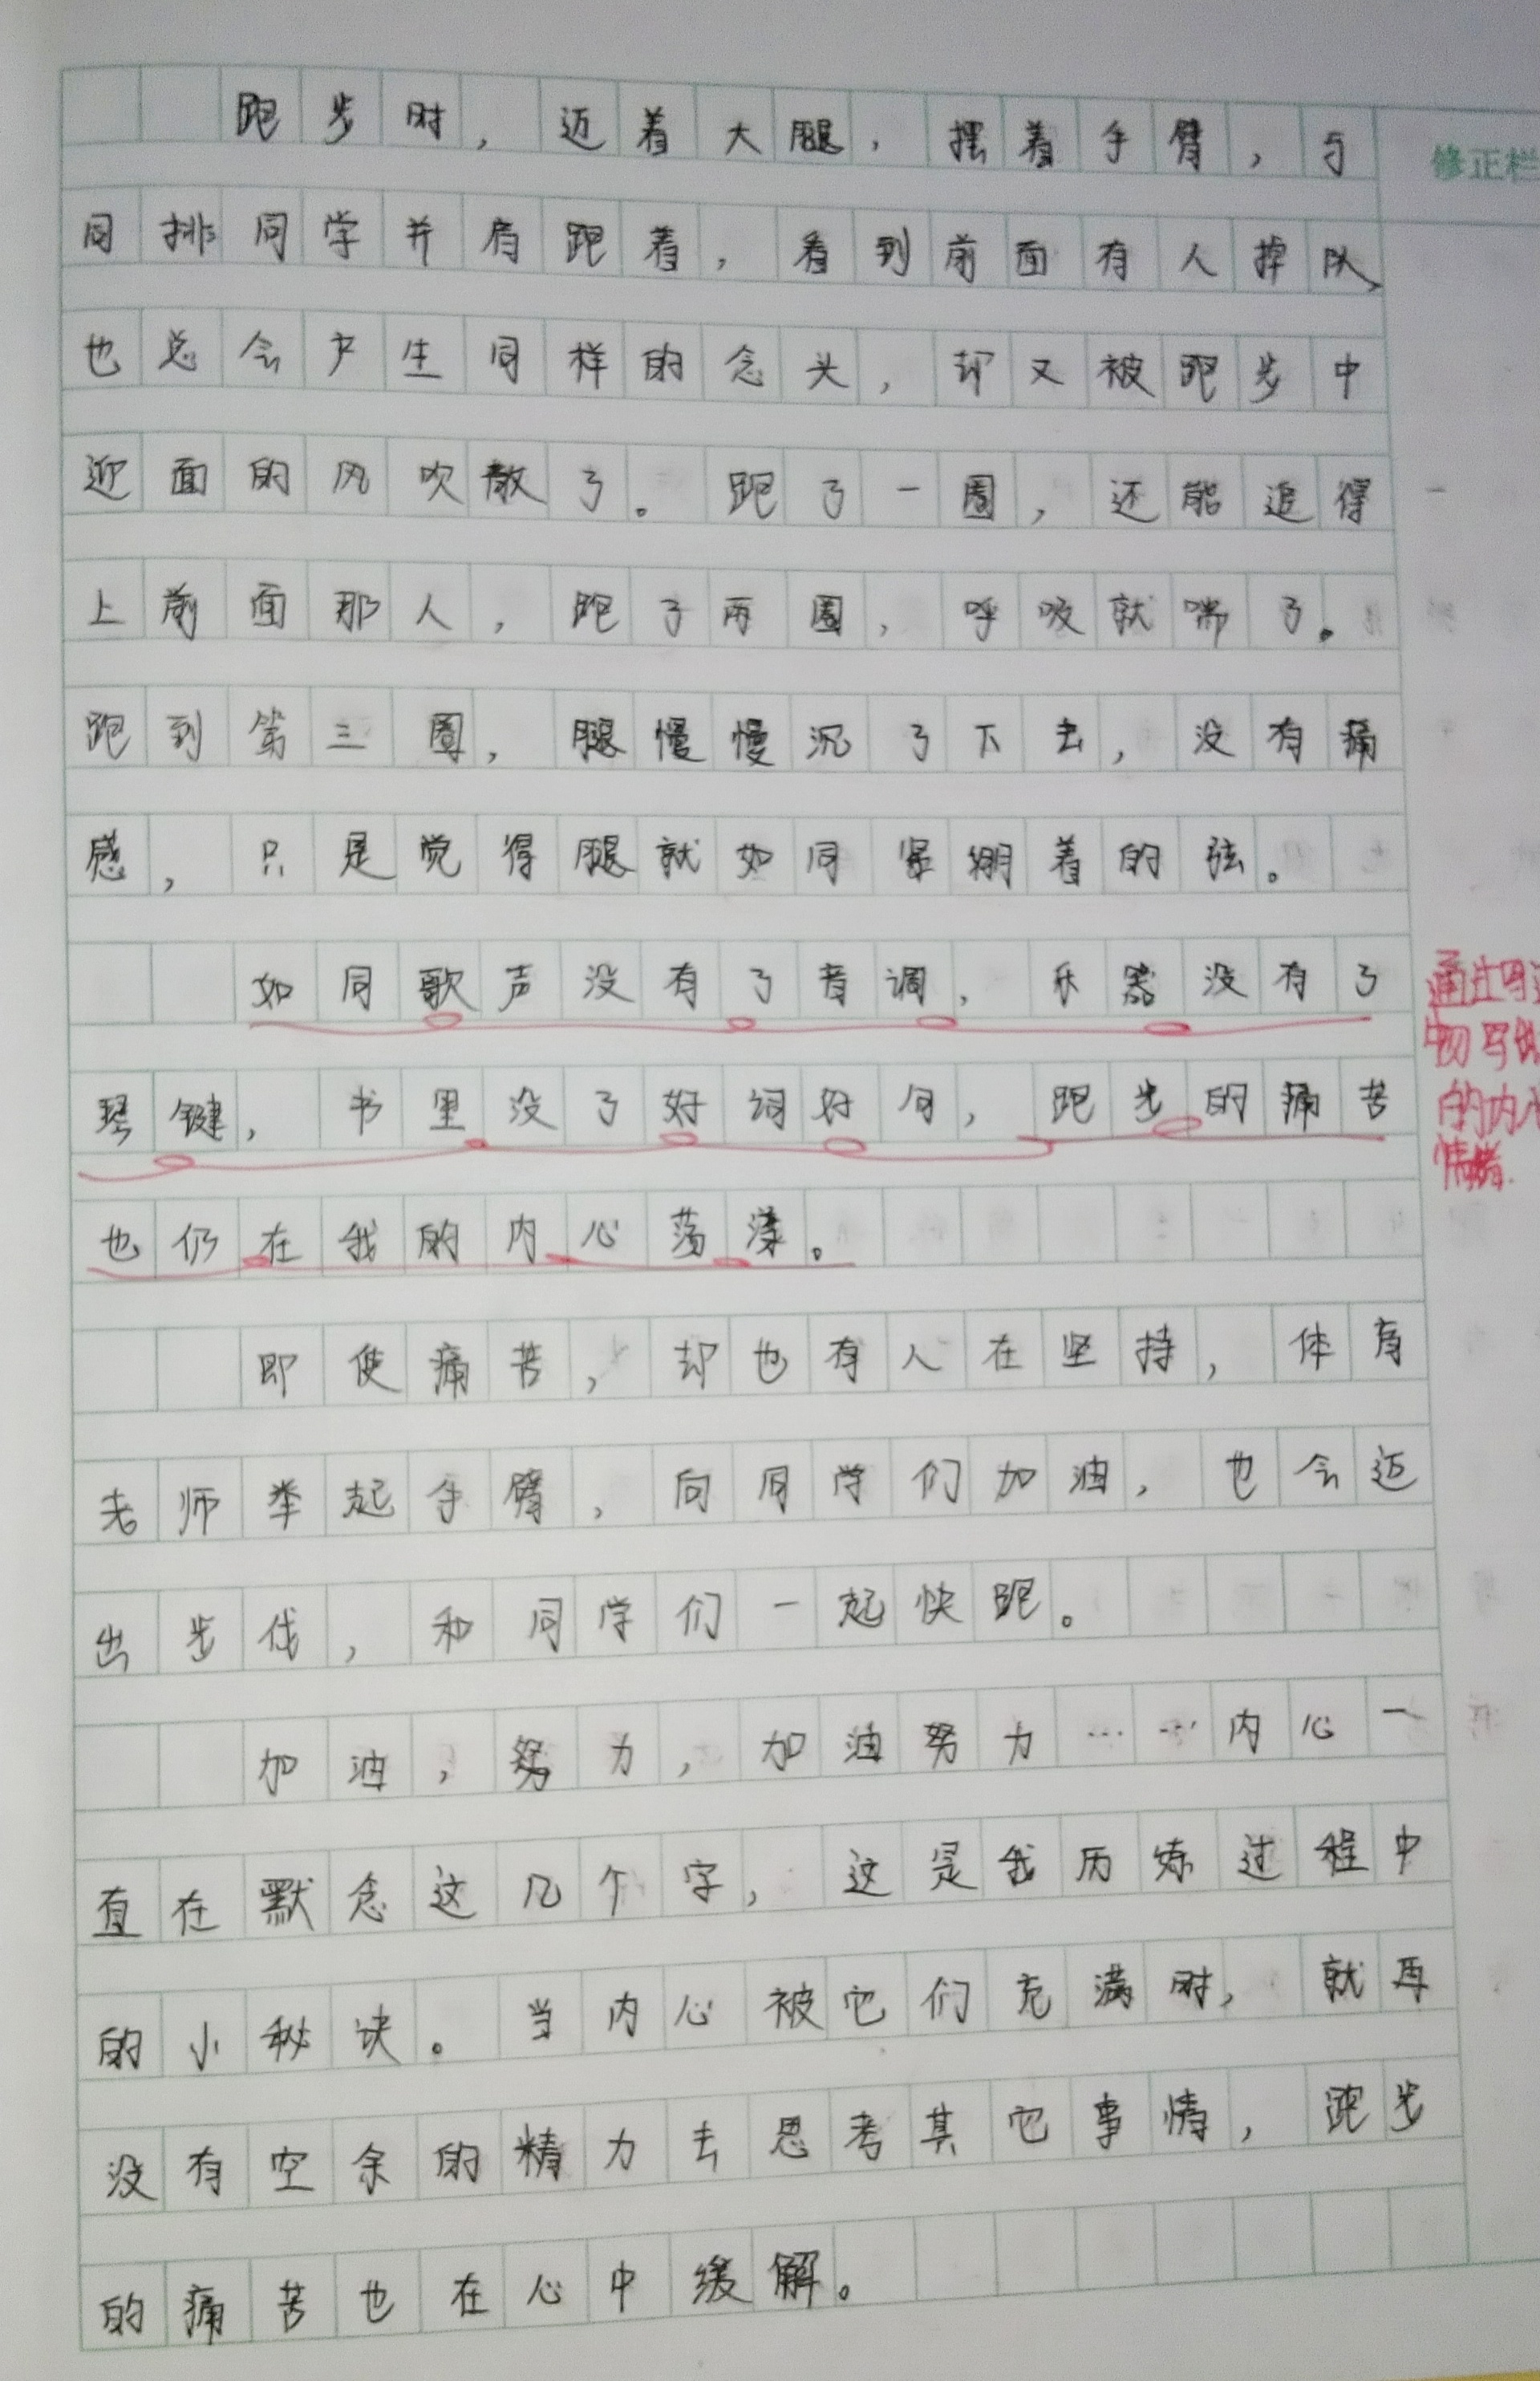 跑步时，迈着大腿，摆着手臂，与
修正栏
同排同学并肩跑着，看到前面有人掉队，
也总会产生同样的念头，却又被跑步中
迎面的风吹散了。跑了一圈，还能追得
上前面那人，跑了两圈，呼吸就喘了。
跑到第三圈，腿慢慢沉了下去，没有痛
感，只是觉得腿就如同紧绷着的弦。
如同歌声没有了音调，乐器没有了
琴键，书里没了好词好句，跑步的痛苦
也仍在我的内心荡漾。
通过
物写
的内心
情绪.
即使痛苦，却也有人在坚持，体育
老师举起手臂，向同学们加油，也会迈
出步伐，和同学们一起快跑。
加油，努力，加油努力……内心一
直在默念这几个字，这是我历炼过程中
的小秘诀。当内心被它们充满时，就再
没有空余的精力去思考其它事情，跑步
的痛苦也在心中缓解。